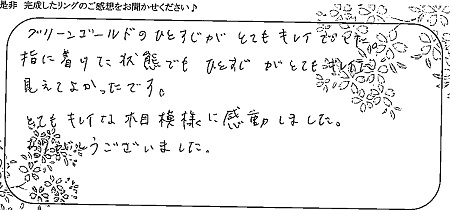 是非 完成したリングのご感想をお聞かせください♪
グリーンゴールドのひとすじが とてもキレイでした
指に着けた状態でも ひとすじ がとてもキレイに
見えてよかったです。
とてもキレイな木目模様に感動しました。
うございました。